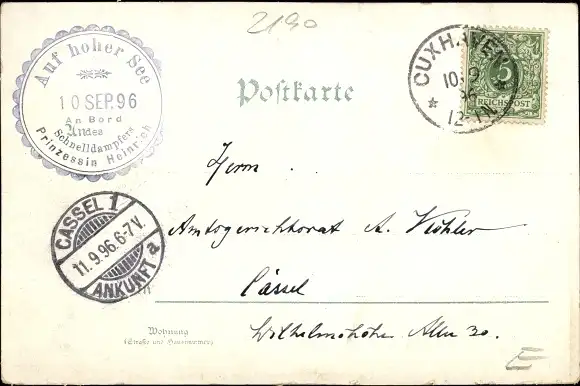 2190
Auf hoher See
10 SEP. 96
An Bord
des
Schnelldampfers
Prinzessin Heinrich
Postkarte
CUXHAVEN
10.9
96
12-1N.
5
REICHSPOST
Herrn
Amtsgerichtsrat A. Köhler
Cassel
Wilhelmshöher Allee 30.
CASSEL 1
11.9.96.6-7V.
ANKUNFT a
Wohnung
(Straße und Hausnummer)
E